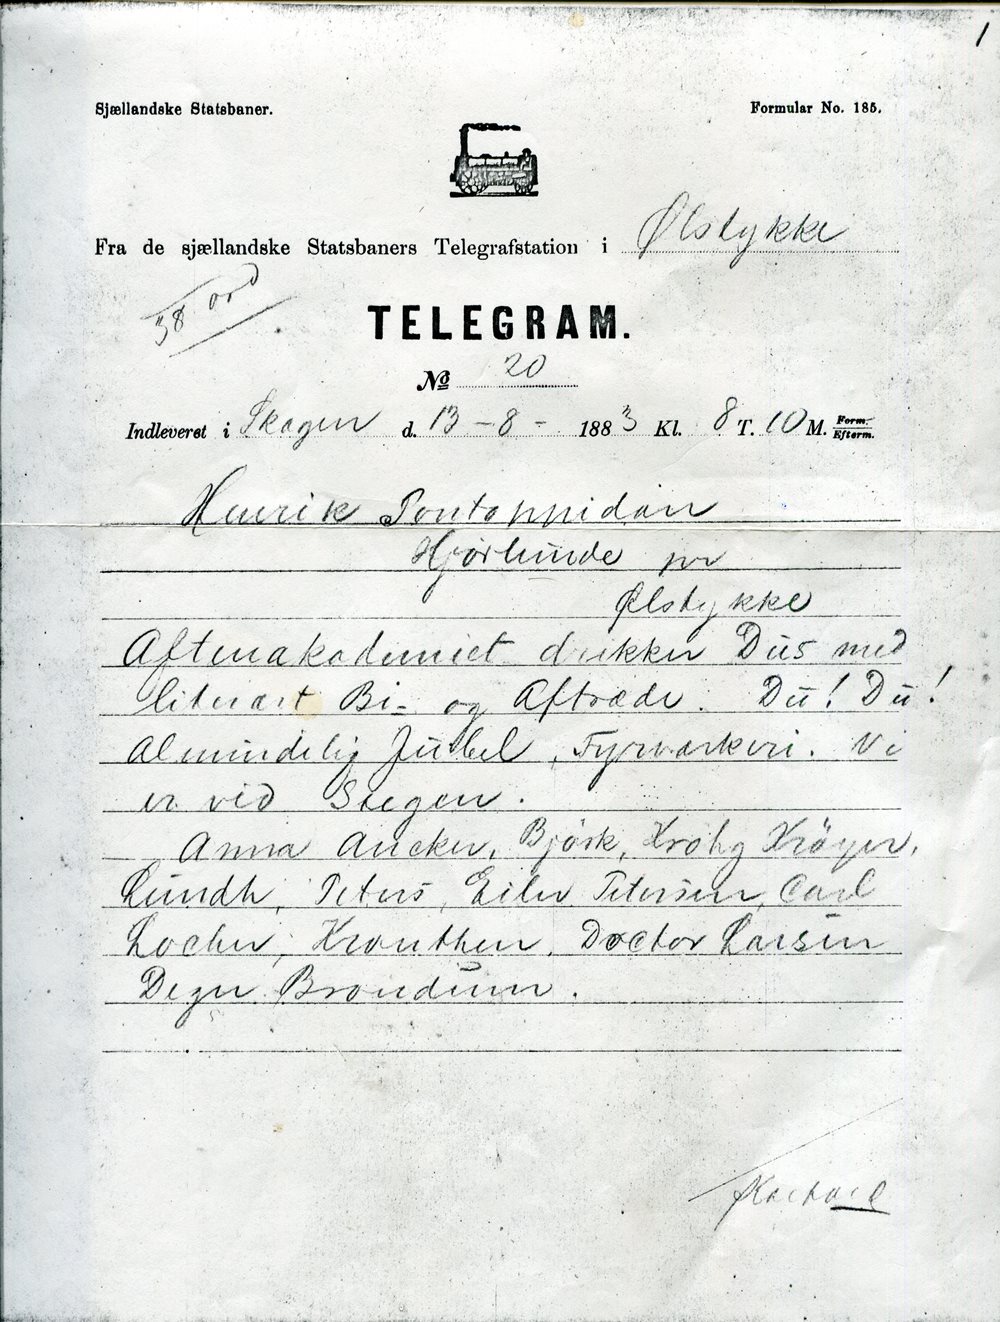 1
Sjællandske Statsbaner. Formular No. 185.
Fra de sjællandske Statsbaners Telegrafstation i Ølstykke
38 ord
TELEGRAM.
No 20
Indleveret i Skagen d. 13-8- 1883 Kl. 8 T. 10 M. Form. Efterm.
Henrik Pontoppidan
Hjørlunde pr
Ølstykke
Aftenakademiet drikker Dus med
literært Bi- og Aftræde. Du! Du!
Almindelig Jubel, Fyrværkeri. Vi
er ved Stegen.
Anna Ancker, Bjørk, Krohg Krøyer,
Lundh, Peters, Eiler Petersen, Carl
Locher, Krouthen. Doctor Larsen
Degn Brøndum.